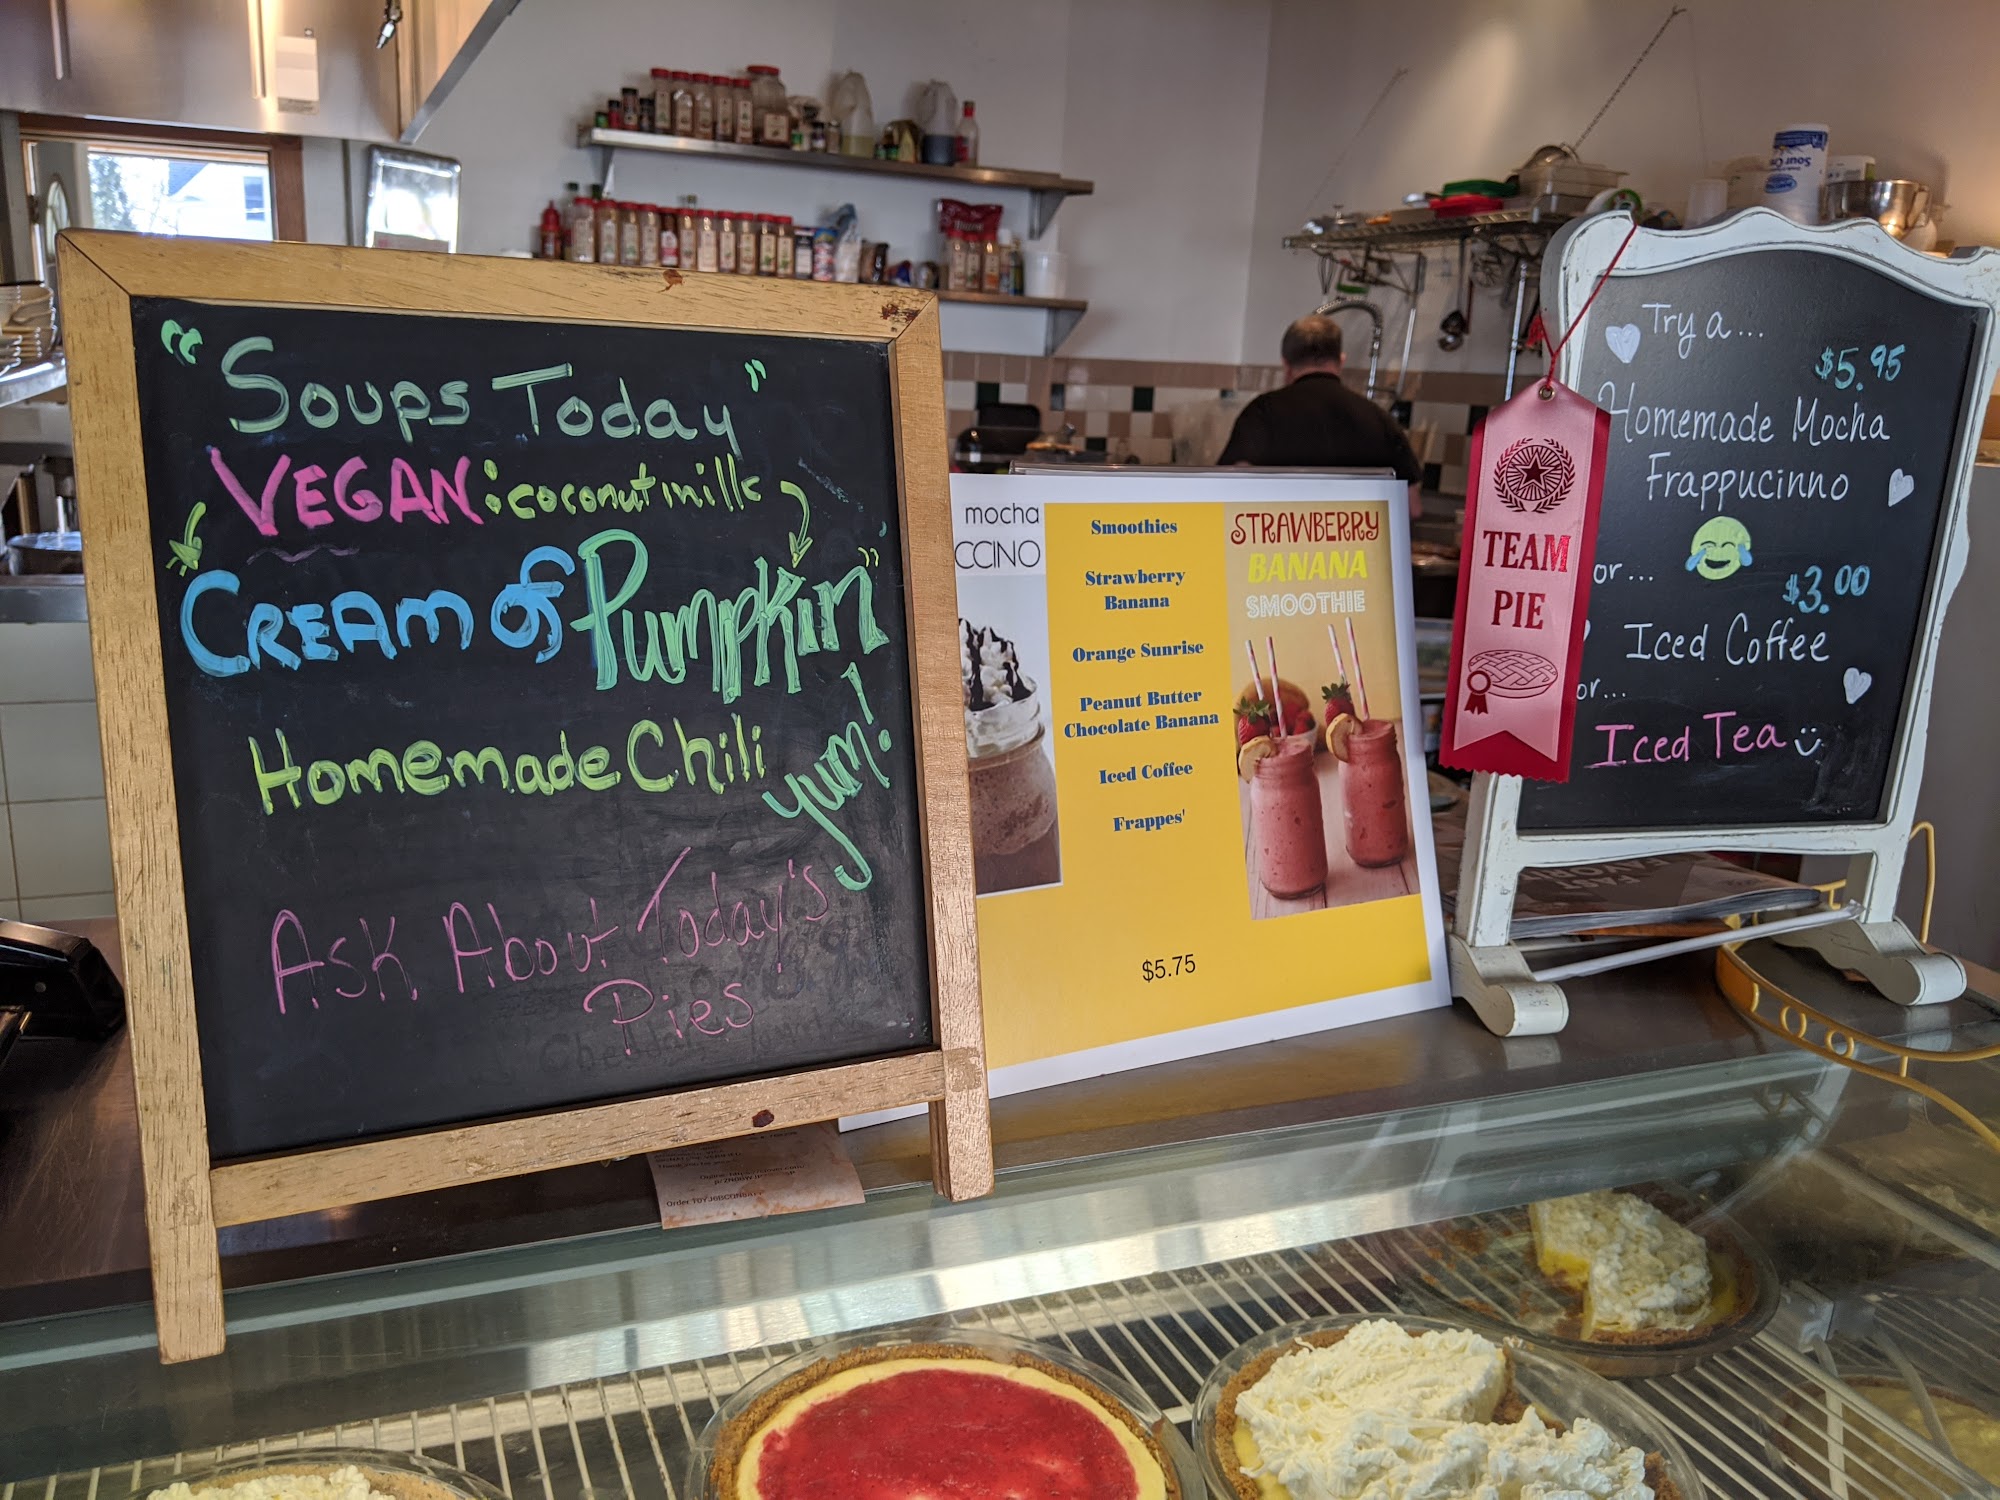 "Soups Today"
VEGAN: coconut milk
"CREAM of Pumpkin"
Homemade Chili
yum!
Ask About Today's
Pies
mocha
CCINO
Smoothies
Strawberry
Banana
Orange Sunrise
Peanut Butter
Chocolate Banana
Iced Coffee
Frappes'
$5.75
STRAWBERRY
BANANA
SMOOTHIE
TEAM
PIE
Try a...
$5.95
Homemade Mocha
Frappucinno
or...
$3.00
Iced Coffee
or...
Iced Tea
Sour